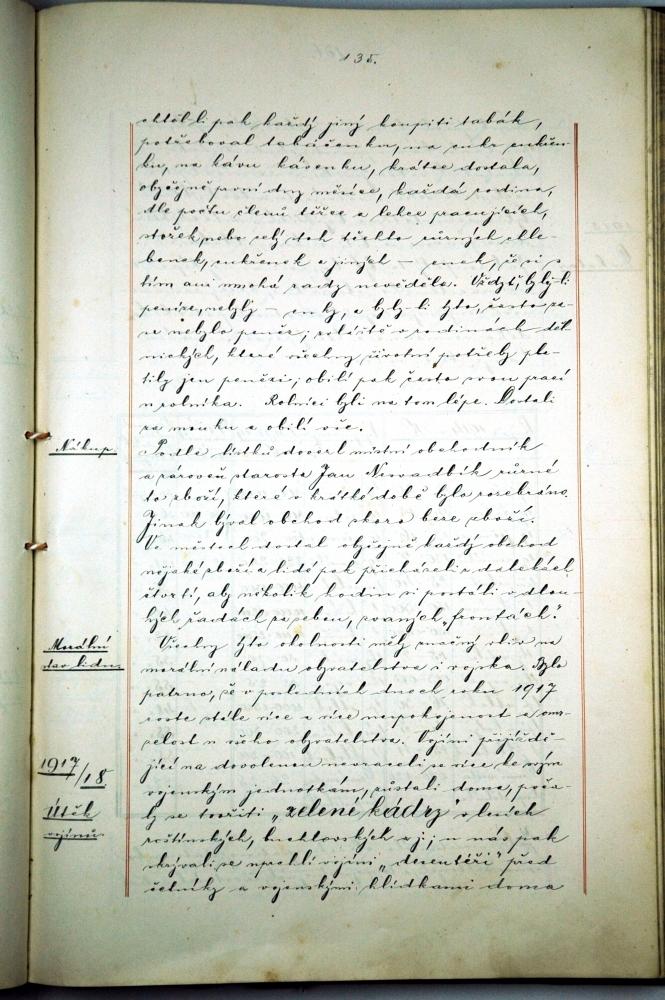 135.
chtěl-li pak každý jiný koupiti tabák,
potřeboval tabáčenku, na cukr cukřen-
ku, na kávu kávenku, krátce dostala,
obyčejně první dny měsíce, každá rodina,
dle počtu členů těžce a lehce pracujících,
stožek nebo celý stoh těchto různých chle-
benek, cukřenek a jiných — enek, že si s
tím ani mnohá rady nevěděla. Vždyť, byly-li
peníze, nebyly — enky, a byly-li tyto, často za-
se nebylo peněz, zvláště v rodinách děl-
nických, které všechny životní potřeby pla-
tily jen penězi, obilí pak často svou prací
u rolníka. Rolníci byli na tom lépe. Dostali
za mouku a obilí vše.
Nákup.
Podle lístků dovezl místní obchodník
a zároveň starosta Jan Nevadbík různé
to zboží, které v krátké době bylo rozebráno.
Jinak býval obchod skoro beze zboží.
Ve městech dostal obyčejně každý obchod
nějaké zboží a lidé pak přicházeli z dalekých
čtvrtí, aby několik hodin si postáli v dlou-
hých řadách za sebou, zvaných „frontách".
Morální
stav lidu.
Všechny tyto okolnosti měly značný vliv na
morální náladu obyvatelstva i vojska. Bylo
patrno, že v posledních dnech roku 1917
roste stále více a více nespokojenost a omr-
zelost u všeho obyvatelstva. Vojíni přijíždě-
1917/18
jící na dovolenou nevraceli se více ke svým
vojenským jednotkám, zůstali doma, poča-
Útěk
vojínů.
ly se tvořiti „zelené kádry" v lesích
roštínských, buchlovských a j.; u nás pak
skrývali se uprchlí vojíni „desentéři" před
četníky a vojenskými hlídkami doma